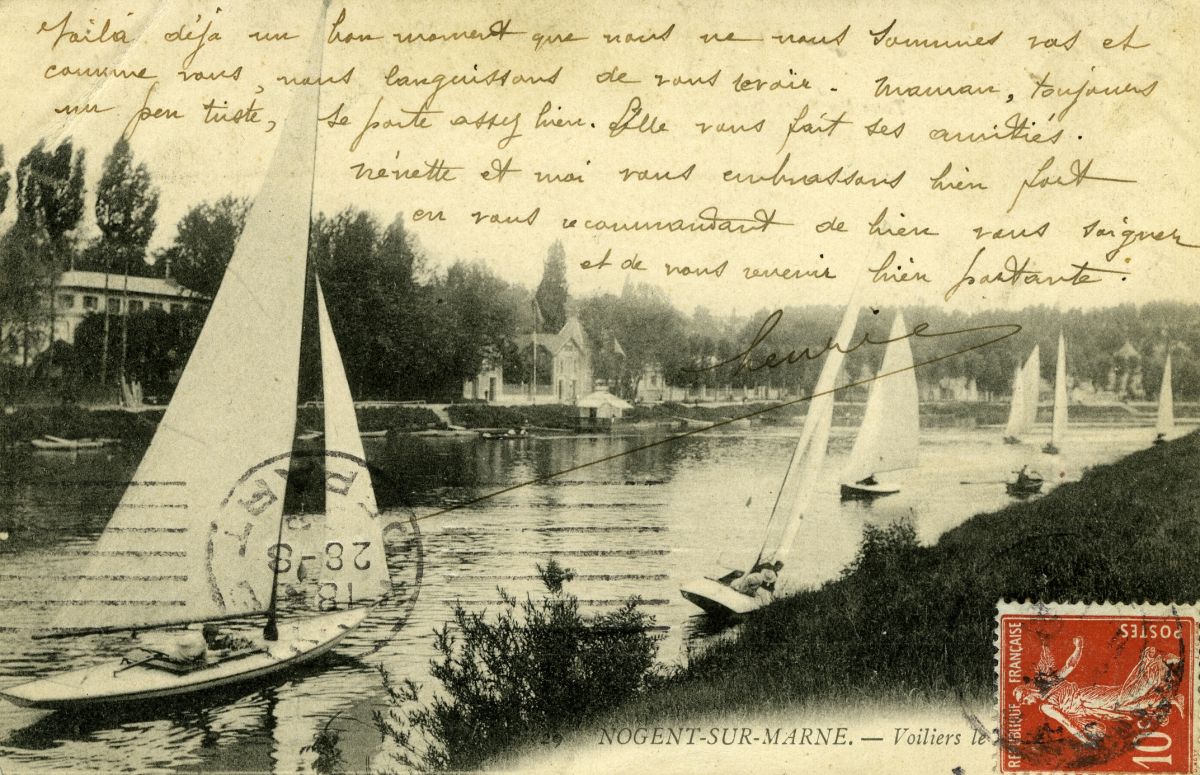 Voilà déjà un bon moment que nous ne nous sommes vus et
comme vous, nous languissons de vous revoir. Maman, toujours
un peu triste, se porte assez bien. Elle vous fait ses amitiés.
Nénette et moi vous embrassons bien fort
en vous recommandant de bien vous soigner
et de nous revenir bien portante.
28-8
NOGENT-SUR-MARNE. — Voiliers le
REPUBLIQUE FRANÇAISE
POSTES
10